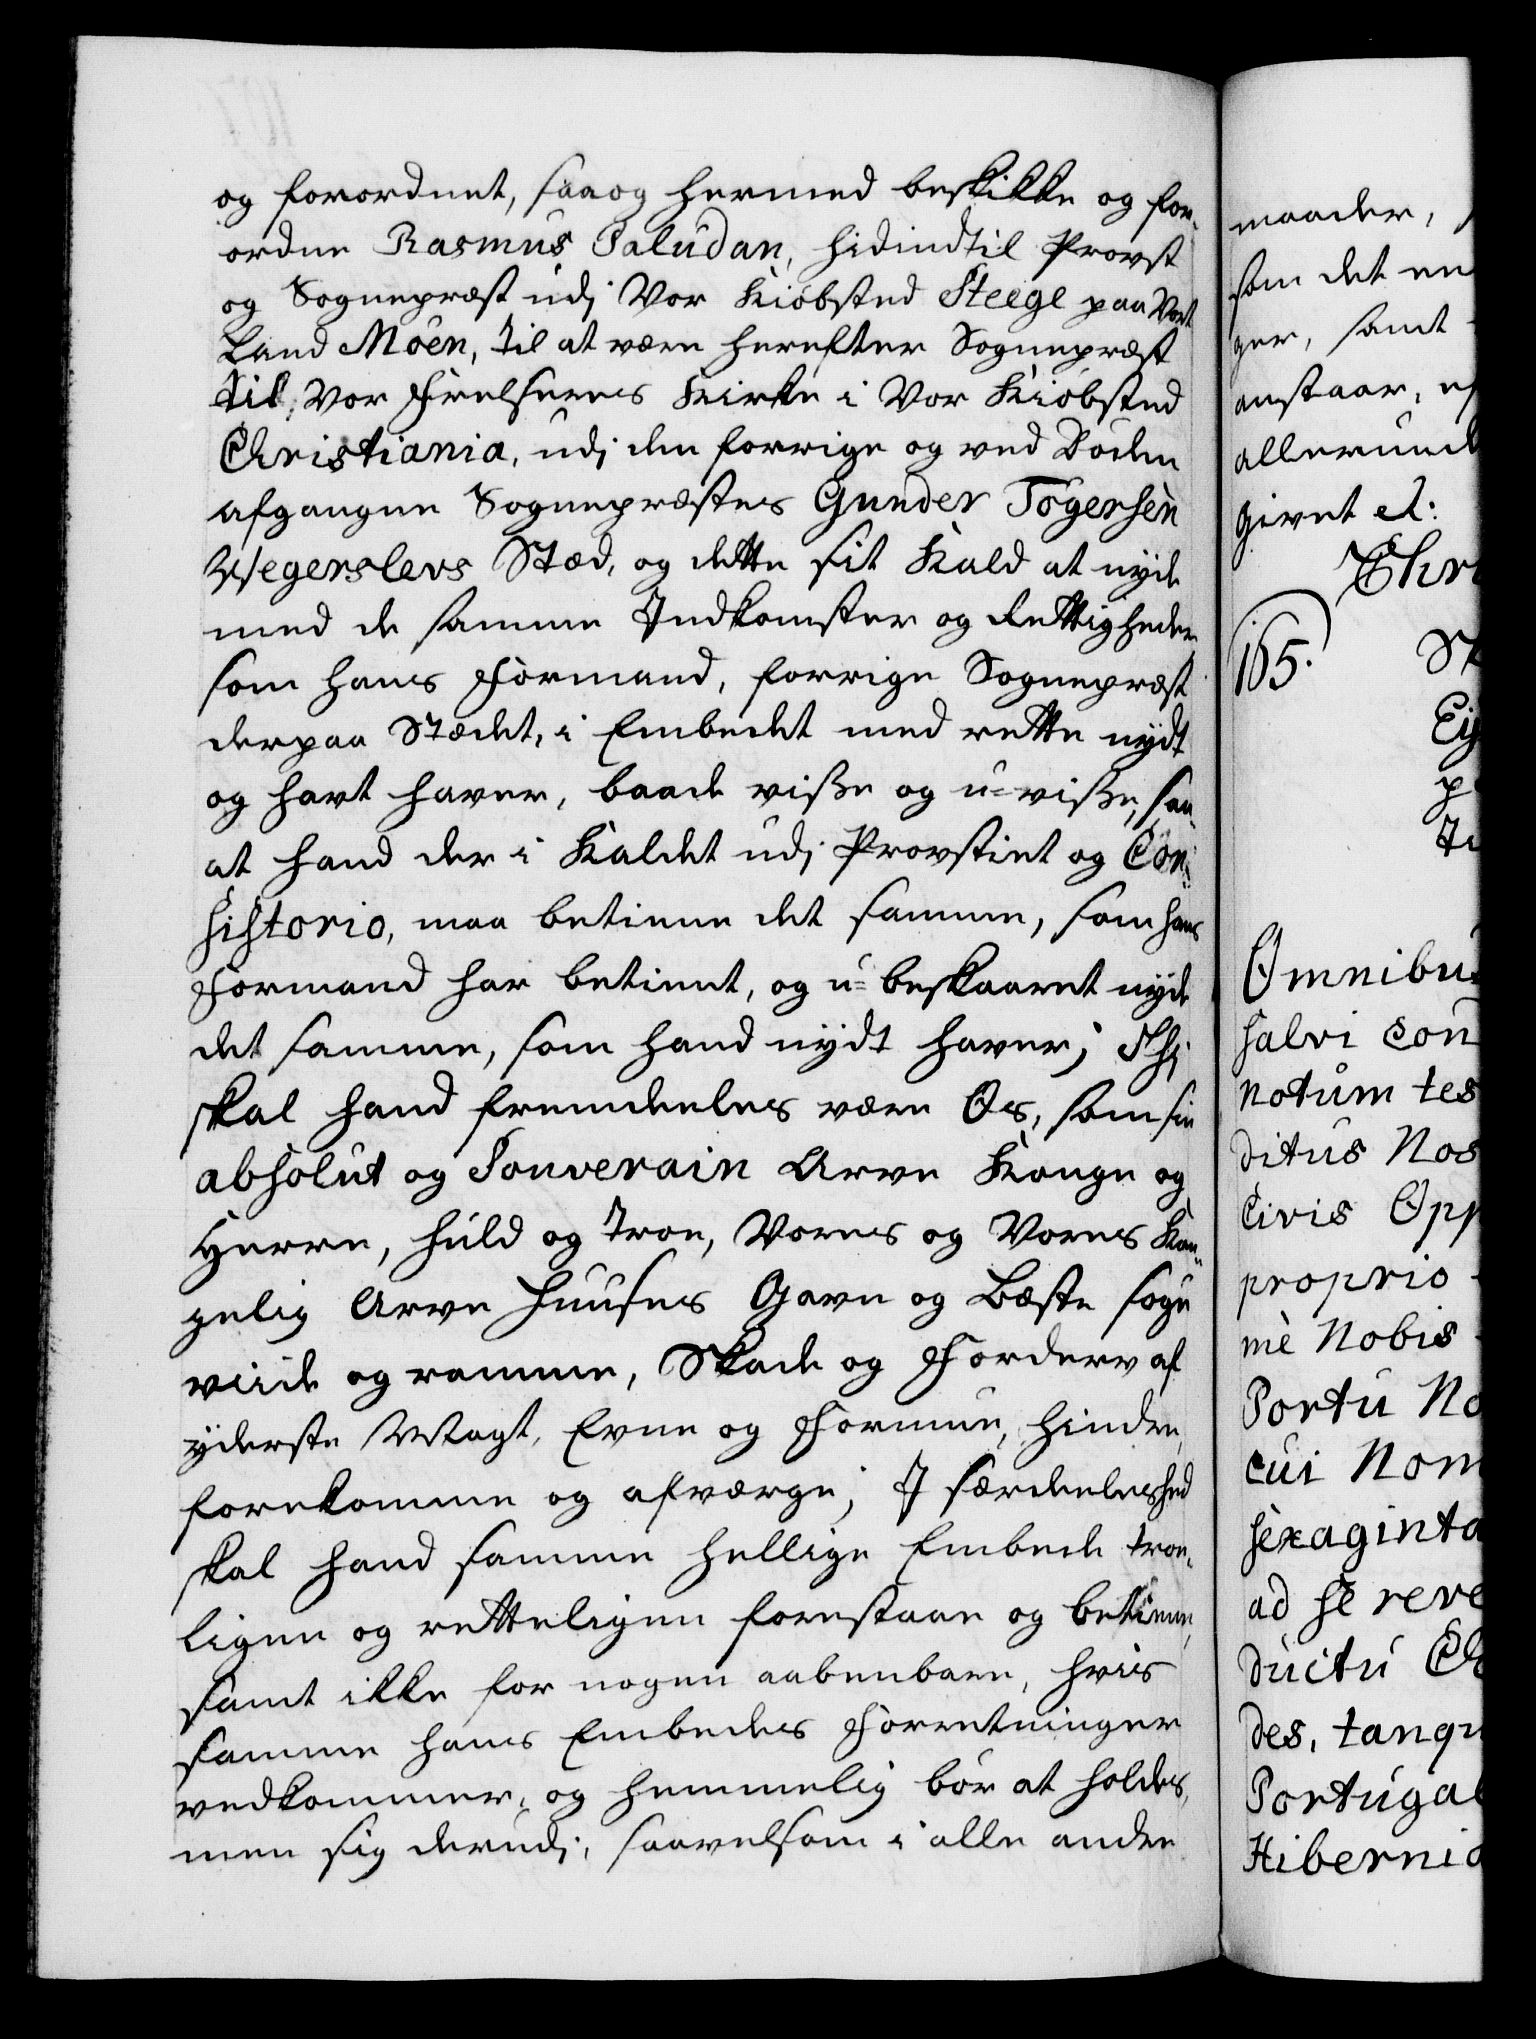 og forordnet, saa og hermed beskikke og for-
ordne Rasmus Paludan, hidindtil Provst
og Sognepræst udj Vor Kiøbsted Steege paa Vort
Land Møen, til at være herefter Sognepræst
til Vor Frelseres Kirke i Vor Kiøbsted
Christiania, udj den forrige og ved Døden
afgangne Sognepræstes Gunder Tøgersen
Wegerslevs Stæd, og dette sit Kald at nyde
med de samme Indkomster og Rettigheder
som hans Formand, forrige Sognepræst
derpaa Stædet, i Embedet med rette nydt
og havt haver, baade visse og u-visse, saa
at hand der i Kaldet udj Provstiet og Con-
sistorio, maa betiene det samme, som hans
Formand har betient, og u-beskaaret nyde
det samme, som hand nydt haver; Thi
skal hand fremdeeles være Os, som sin
absolut og Souverain Arve Konge og
Herre, huld og troe, Vores og Vores Kon-
gelig Arve Huuses Gavn og Bæste søge
viide og ramme, Skade og Forderv af
yderste Magt, Evne og Formue, hindre,
forekomme og afværge; I særdeleshed
skal hand samme hellige Embede troe-
ligen og retteligen forestaae og betiene,
samt ikke for nogen aabenbare, hvis
samme hans Embedes Forretninger
vedkommer, og hemmelig bør at holdes,
men sig derudj, saavelsom i alle andre
maader,
som det en
ger, samt
anstaar, ef
allerund
Givet et:
Chri
165.
St
Eij
p
Ju
Omnibus
salvi con
notum tes
ditus Nos
Civis Opp
proprio
me Nobis
Portu No
cui Nom
sexaginta
ad se reve
ductu Ch
des, tanqu
Portugal
Hibernia